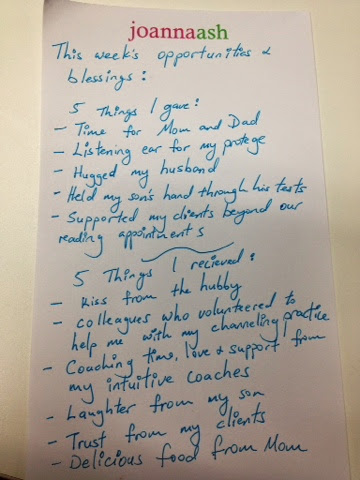 joannaash
This week's opportunities &
blessings :
5 Things I gave :
- Time for Mom and Dad
- Listening ear for my protege
- Hugged my husband
- Held my son's hand through his tests
- Supported my clients beyond our
reading appointments
5 Things I recieved :
- Kiss from the hubby
- colleagues who volunteered to
help me with my channeling practice
- Coaching time, love & support from
my intuitive coaches
- Laughter from my son
- Trust from my clients
- Delicious food from Mom